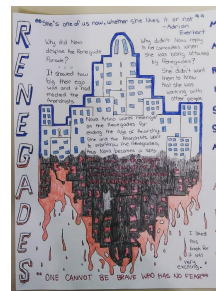 "She's one of us now, whether she likes it or not."
-Adrian
Everhart
RENEGADES
Why did Nova
despise the Renegade
Parade?
It showed how
big their ego
was and it
mocked the
Anarchists
Why didn't Nova want
to be
when
she was badly
by Renegades?
She didn't want
them to know
that she was
working with
other people
Nova Artino wants revenge
on the Renegades for
ending the Age of Anarchy.
She and the Anarchists want
to the Renegades,
and Nova becomes a spy.
I liked
this
book for
it was
very
exciting.
"ONE CANNOT BE BRAVE WHO HAS NO FEAR"